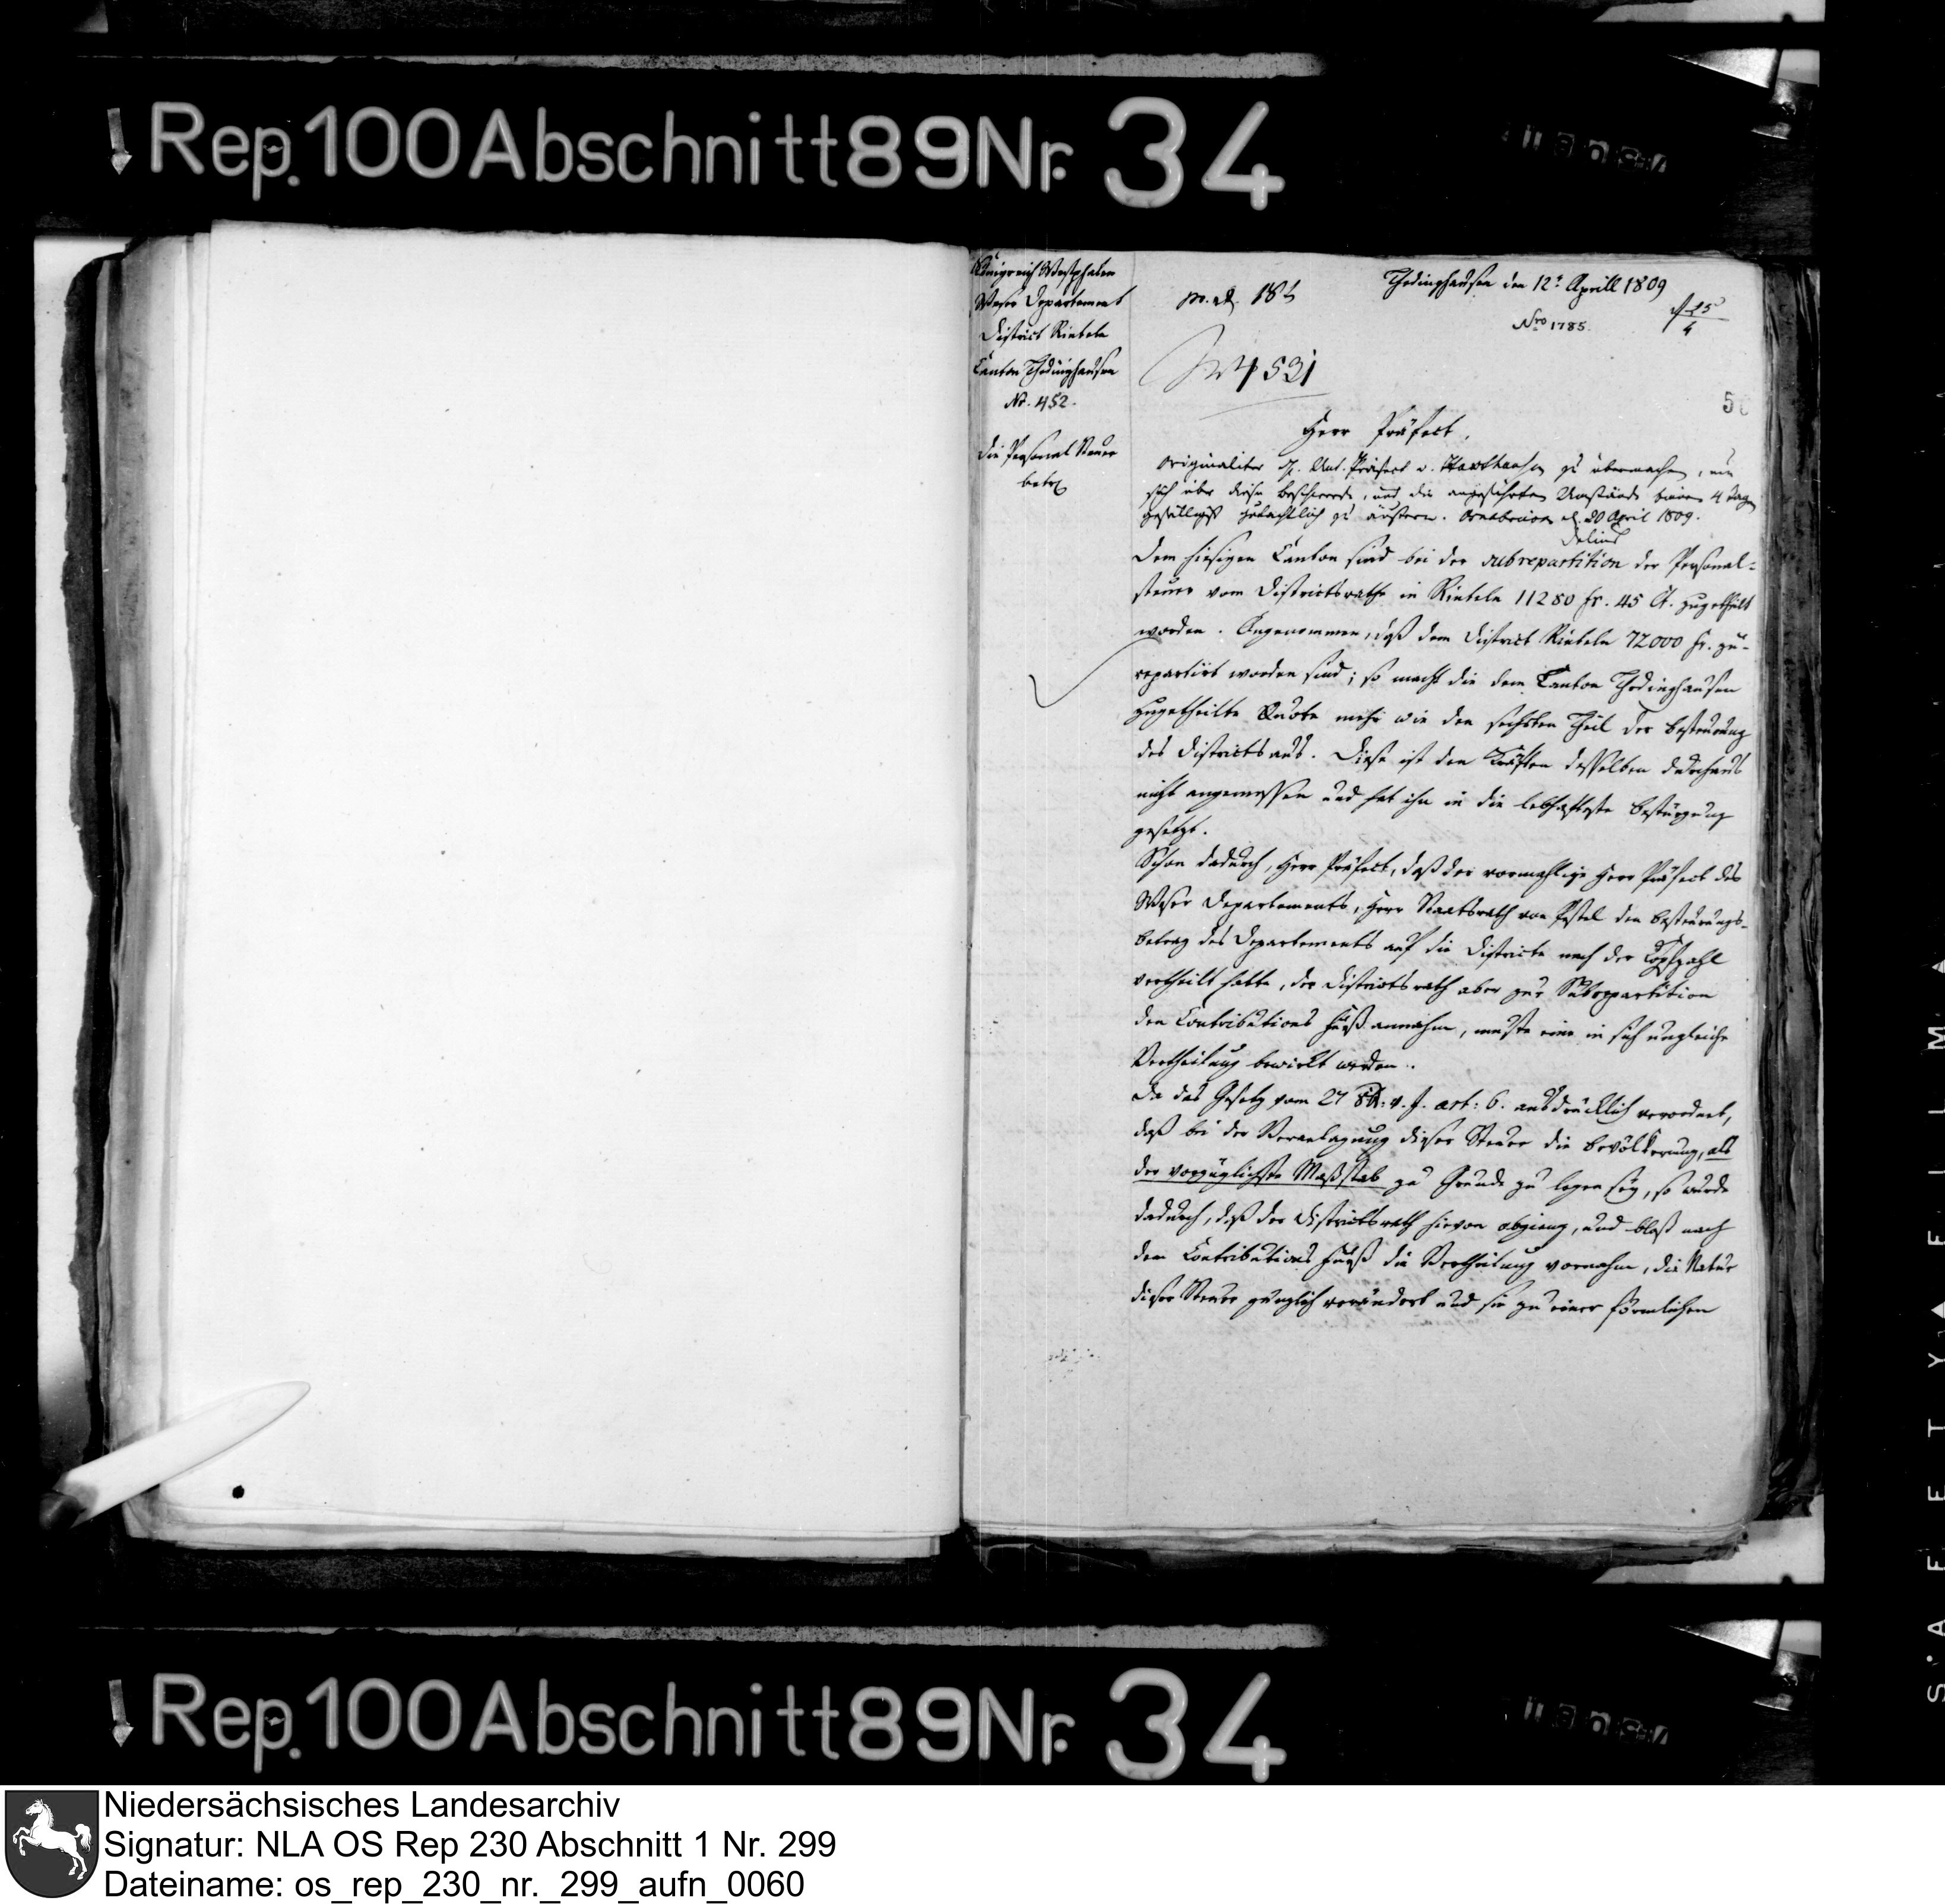 Rep. 100 Abschnitt 89 Nr. 34
Königreich Westphalen
Weser Departement
District Rinteln
Canton Thedinghausen
No. 452.
die Personal Steuer
betr
Thedinghausen den 12t Aprill 1809
Nro 1785.
531
Herr Präfect,
Originaliter Unt. Präfect v. zu übermachen, um
sich über diese Beschwerde, und die angeführten Umstände binnen 4 Tagen
gefälligst gutachtlich zu äussern. Osnabrück d. 20 April 1809.
Delius
Dem hiesigen Canton sind bei der subrepartition der Personal-
steuer vom Districtsrathe in Rinteln 11280 fr. 45 Ct. zugetheilt
worden. Angenommen, daß dem District Rinteln 72000 fr. zu-
repartirt worden sind; so macht die dem Canton Thedinghausen
zugetheilte Quote mehr wie den sechsten Theil der Besteurung
des Districts aus. Diese ist den Kräften desselben durchaus
nicht angemessen und hat ihn in die lebhafteste Bestürzung
gesetzt.
Schon dadurch, Herr Präfect, daß der vormahlige Herr Präfect des
Weser Departements, Herr Staatsrath von Pestel den Besteurungs-
betrag des Departements auf die Districte nach der Kopfzahl
vertheilt hatte, der Districtsrath aber zur Subrepartition
den Contributions Fuß annahm, mußte eine in sich ungleiche
Vertheilung bewirkt werden.
Da das Gesetz vom 27 v. J. art: 6. ausdrücklich verordnet,
daß bei der Veranlagung dieser Steuer die Bevölkerung, als
der vorzüglichste Maßstab zu Grunde zu legen sey, so wurde
dadurch, daß der Districtsrath hievon abgieng, und bloß nach
dem Contributions Fuß die Vertheilung vornahm, die Natur
dieser Steuer gänzlich verändert und sie zu einer förmlichen
Rep. 100 Abschnitt 89 Nr. 34
SAFETY FILM
Niedersächsisches Landesarchiv
Signatur: NLA OS Rep 230 Abschnitt 1 Nr. 299
Dateiname: os_rep_230_nr._299_aufn_0060